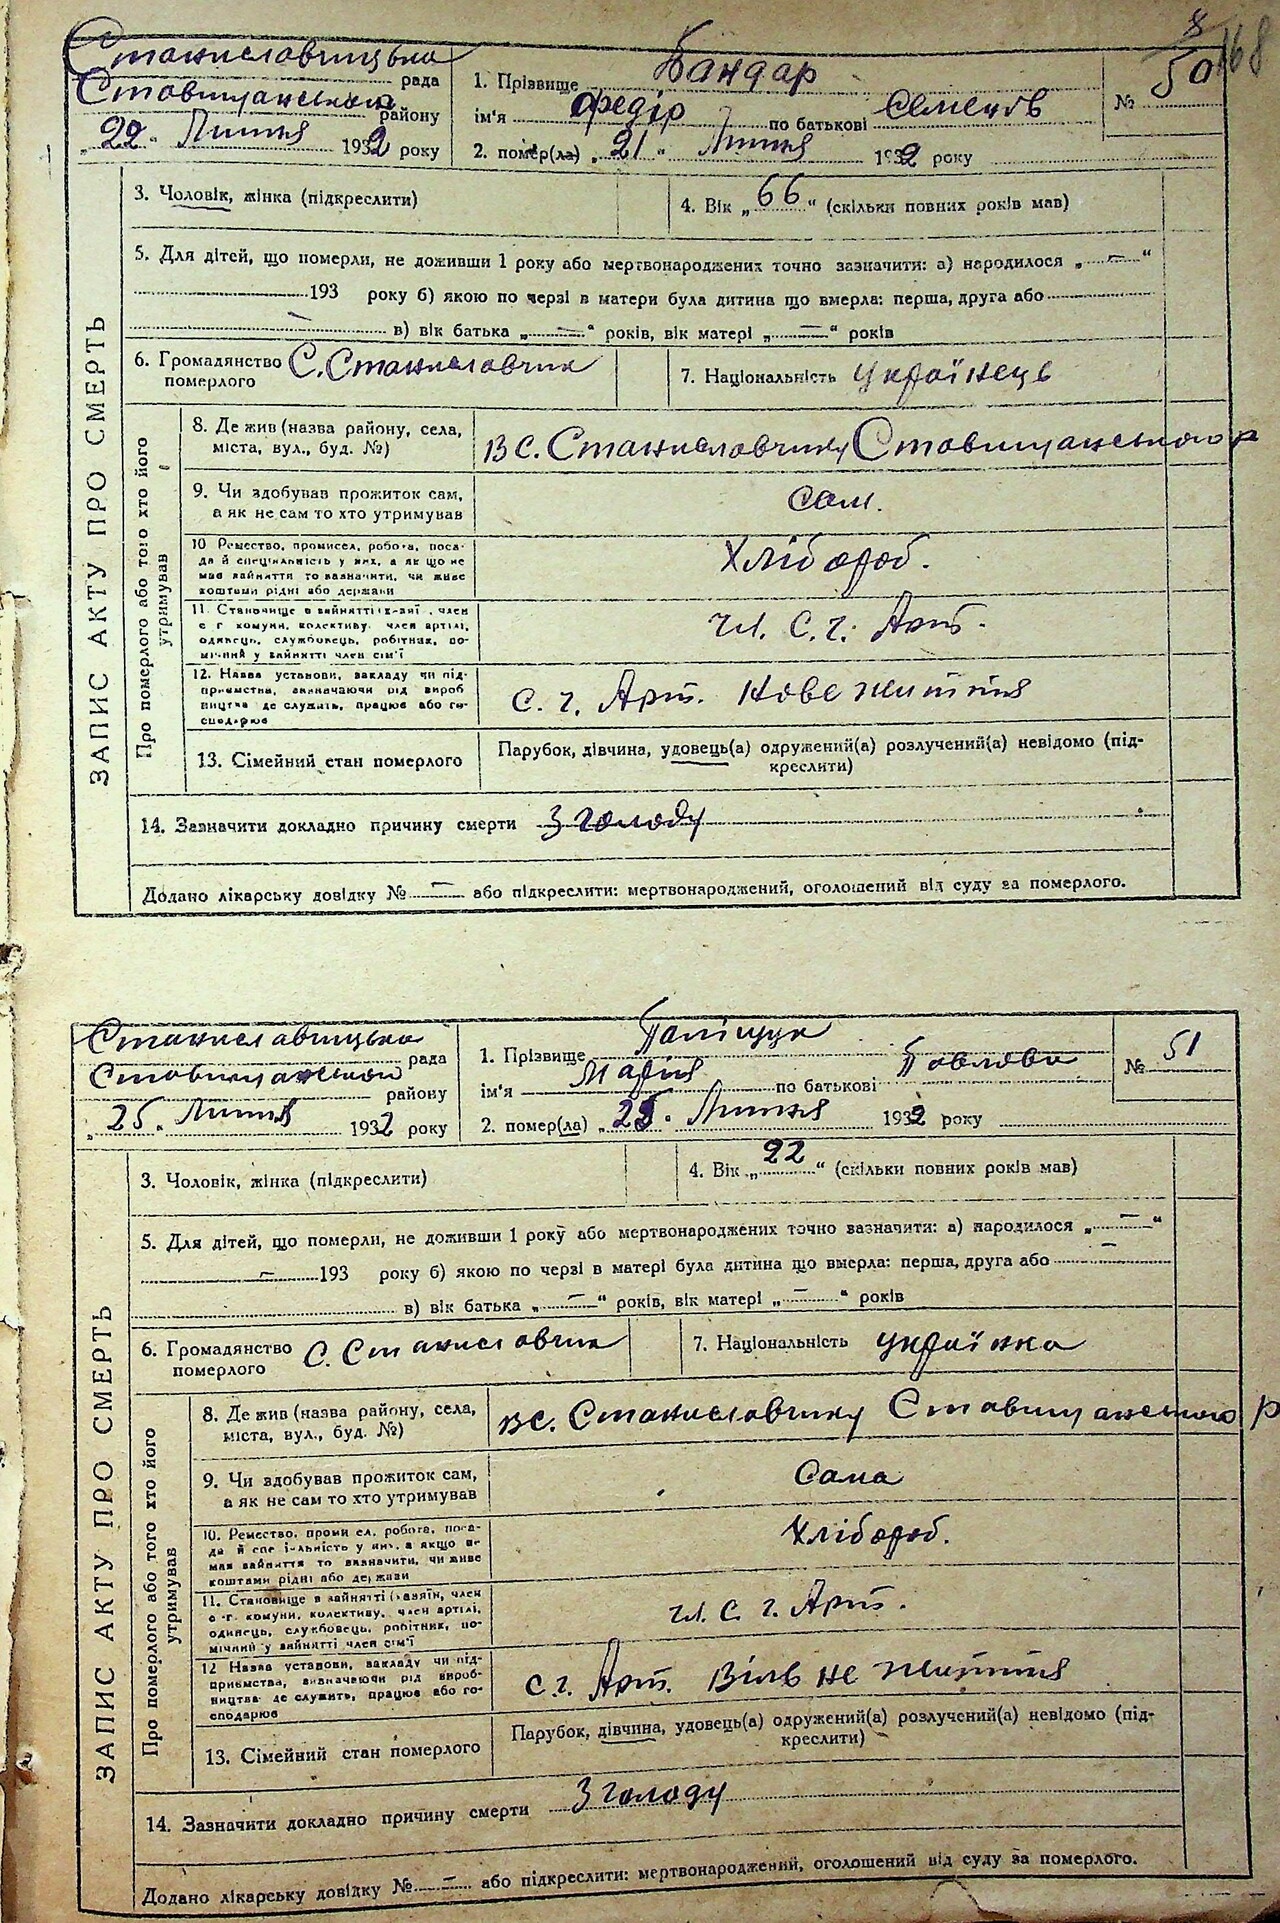 8
50 168
Станиславчицька рада
Ставищанський району
„22" Липня 1932 року
1. Прізвище Бандар
ім'я Федір по батькові Семенів
№ 50
2. помер(ла) „21" Липня 1932 року
ЗАПИС АКТУ ПРО СМЕРТЬ
3. Чоловік, жінка (підкреслити)
4. Вік „66" (скільки повних років мав)
5. Для дітей, що померли, не доживши 1 року або мертвонароджених точно зазначити: а) народилося „—"
193 року б) якою по черзі в матери була дитина що вмерла: перша, друга або
— в) вік батька „—" років, вік матері „—" років
6. Громадянство померлого С. Станиславчик
7. Національність Українець
Про померлого або того хто його утримував
8. Де жив (назва району, села,
міста, вул., буд. №)
в С. Станиславчику Ставищанського р
9. Чи здобував прожиток сам,
а як не сам то хто утримував
Сам.
10 Ремество, промисел, робота, поса-
да й спеціяльність у них, а як що не
мав зайняття то зазначити, чи живе
коштами рідні або держави
Хлібороб.
11. Становище в зайнятті (х-зяї , член
с г. комуни, колективу, член артілі,
одинець, службовець, робітник, по-
мічний у зайнятті член сім'ї
чл. С. г. Арт.
12. Назва установи, закладу чи під-
приємства, визначаючи рід вироб
ництва де служить, працює або го-
сподарює
С. г. Арт. Нове життя
13. Сімейний стан померлого
Парубок, дівчина, удовець(а) одружений(а) розлучений(а) невідомо (під-
креслити)
14. Зазначити докладно причину смерти З голоду
Додано лікарську довідку № — або підкреслити: мертвонароджений, оголошений від суду за померлого.
Станиславчицька рада
Ставищанської району
„25. Липня 1932 року
1. Прізвище Паліщук
ім'я Марія по батькові Павлова
№ 51
2. помер(ла) „25. Липня 1932 року
ЗАПИС АКТУ ПРО СМЕРТЬ
3. Чоловік, жінка (підкреслити)
4. Вік „22" (скільки повних років мав)
5. Для дітей, що померли, не доживши 1 року або мертвонароджених точно зазначити: а) народилося „—"
— 193 року б) якою по черзі в матері була дитина що вмерла: перша, друга або —
в) вік батька „—" років, вік матері „—" років
6. Громадянство померлого С. Станиславчик
7. Національність Українка
Про померлого або того хто його утримував
8. Де жив (назва району, села,
міста, вул., буд. №)
в С. Станиславчику Ставищанського р
9. Чи здобував прожиток сам,
а як не сам то хто утримував
Сама
10. Ремество, проми ел, робота, поса-
да й спе і-льність у них, а якщо не
мав зайняття то зазначити, чи живе
коштами рідні або держави
Хлібороб.
11. Становище в зайнятті (хазяїн, член
с -г. комуни, колективу, член артілі,
одинець, службовець, робітник, по-
мічний у зайнятті член сім'ї
чл. С. г. Арт.
12 Назва установи, закладу чи під-
приємства, визначаючи рід вироб-
ництва де служить, працює або го-
сподарює
С. г. Арт. Вільне життя
13. Сімейний стан померлого
Парубок, дівчина, удовець(а) одружений(а) розлучений(а) невідомо (під-
креслити)
14. Зазначити докладно причину смерти З голоду
Додано лікарську довідку № — або підкреслити: мертвонароджений, оголошений від суду за померлого.